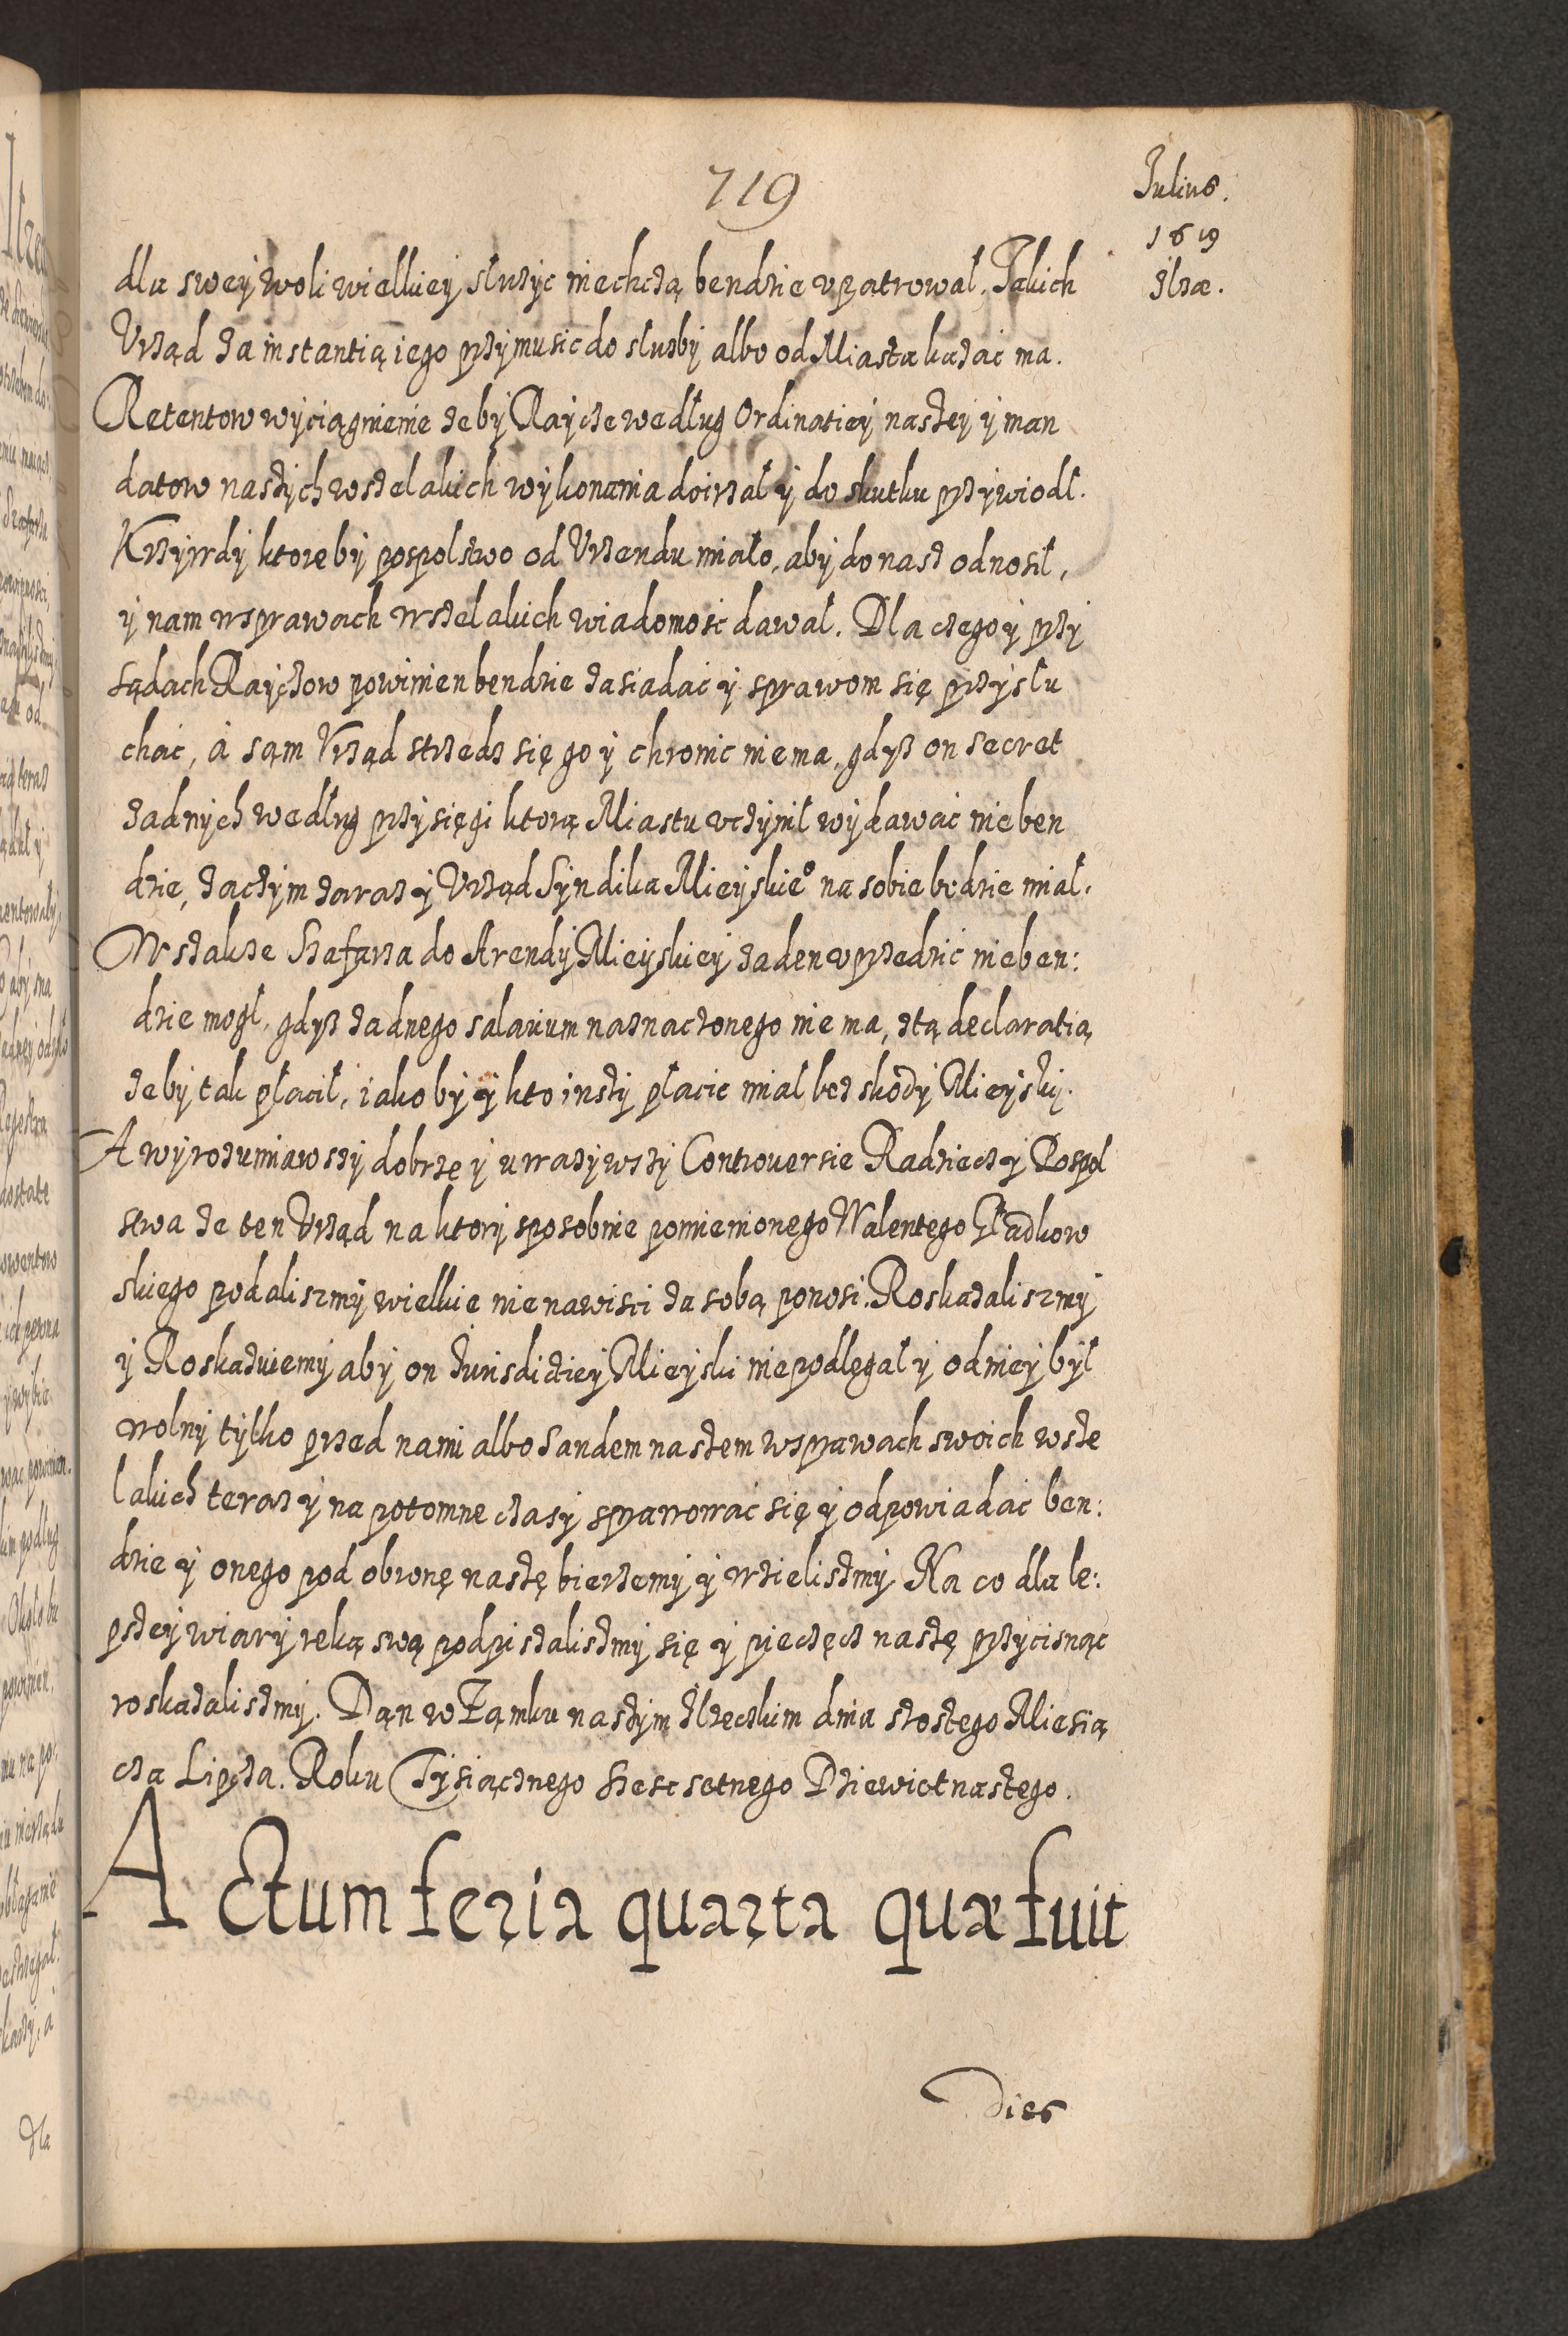 719
Julius.
1619
Ilzæ.
dla swey woli wielkiey służyc niechczą bendzie upatrował. Takich
Vrząd za instantią iego przymusic do służby albo od Miasta kazac ma.
Retentow wyciągnienie żeby Raycze według Ordinatiey naszey y man
datow naszych wszelakich wykonania doirzał y do skutku przywiodł.
Krzywdy ktoreby pospolstwo od Vrzendu miało, aby do nasz odnosił,
y nam w sprawach wszelakich wiadomość dawał. Dla czego y przy
Sądach Rayczow powinien bendzie zasiadać y sprawom się przysłu
chać, á sąm Vrząd strzedz się go y chronic nie ma, gdysz on secret
żadnych według przysięgi ktorą Miastu uczynił wydawać nie ben
dzie, zaczym zaraz y Vrząd Syndika Mieyskieº na sobie będzie miał.
Wszakze Szafarza do Arendy Mieyskiey żaden uprzedzić nie ben:
dzie mogł, gdysz żadnego salarium naznaczonego nie ma, ztą declaratią
żeby tak płacił, iakoby y kto inszy płacic miał bez skody Mieyski.
A wyrozumiawszy dobrze y uwazywszy Controuersie Radziecz y Pospol
stwa ze ten Vrząd na ktory sposobnie pomienionego Walentego Gładkow
skiego podaliszmy wielkie nienawisci za sobą ponosi. Roskazaliszmy
y Roskazuiemy aby on Jurisdictiey Mieyski nie podlegał y od niey był
wolny tylko przed nami albo Sandem naszem w sprawach swoich wsze
lakich teraz y na potomne czasy sprawować się y odpowiadać ben:
dzie y onego pod obronę naszę bierzemy y wzieliszmy. Na co dla le:
pszey wiary reką swą podpiszaliszmy się y pieczęcz naszę przycisnąc
roskazaliszmy. Dąn w Ząmku naszym Ilzeczkim dnia szostego Miesią
cza Lipcza. Roku Tysiącznego Szesc setnego Dziewietnastego.
Actum feria quarta quæ fuit
Dies